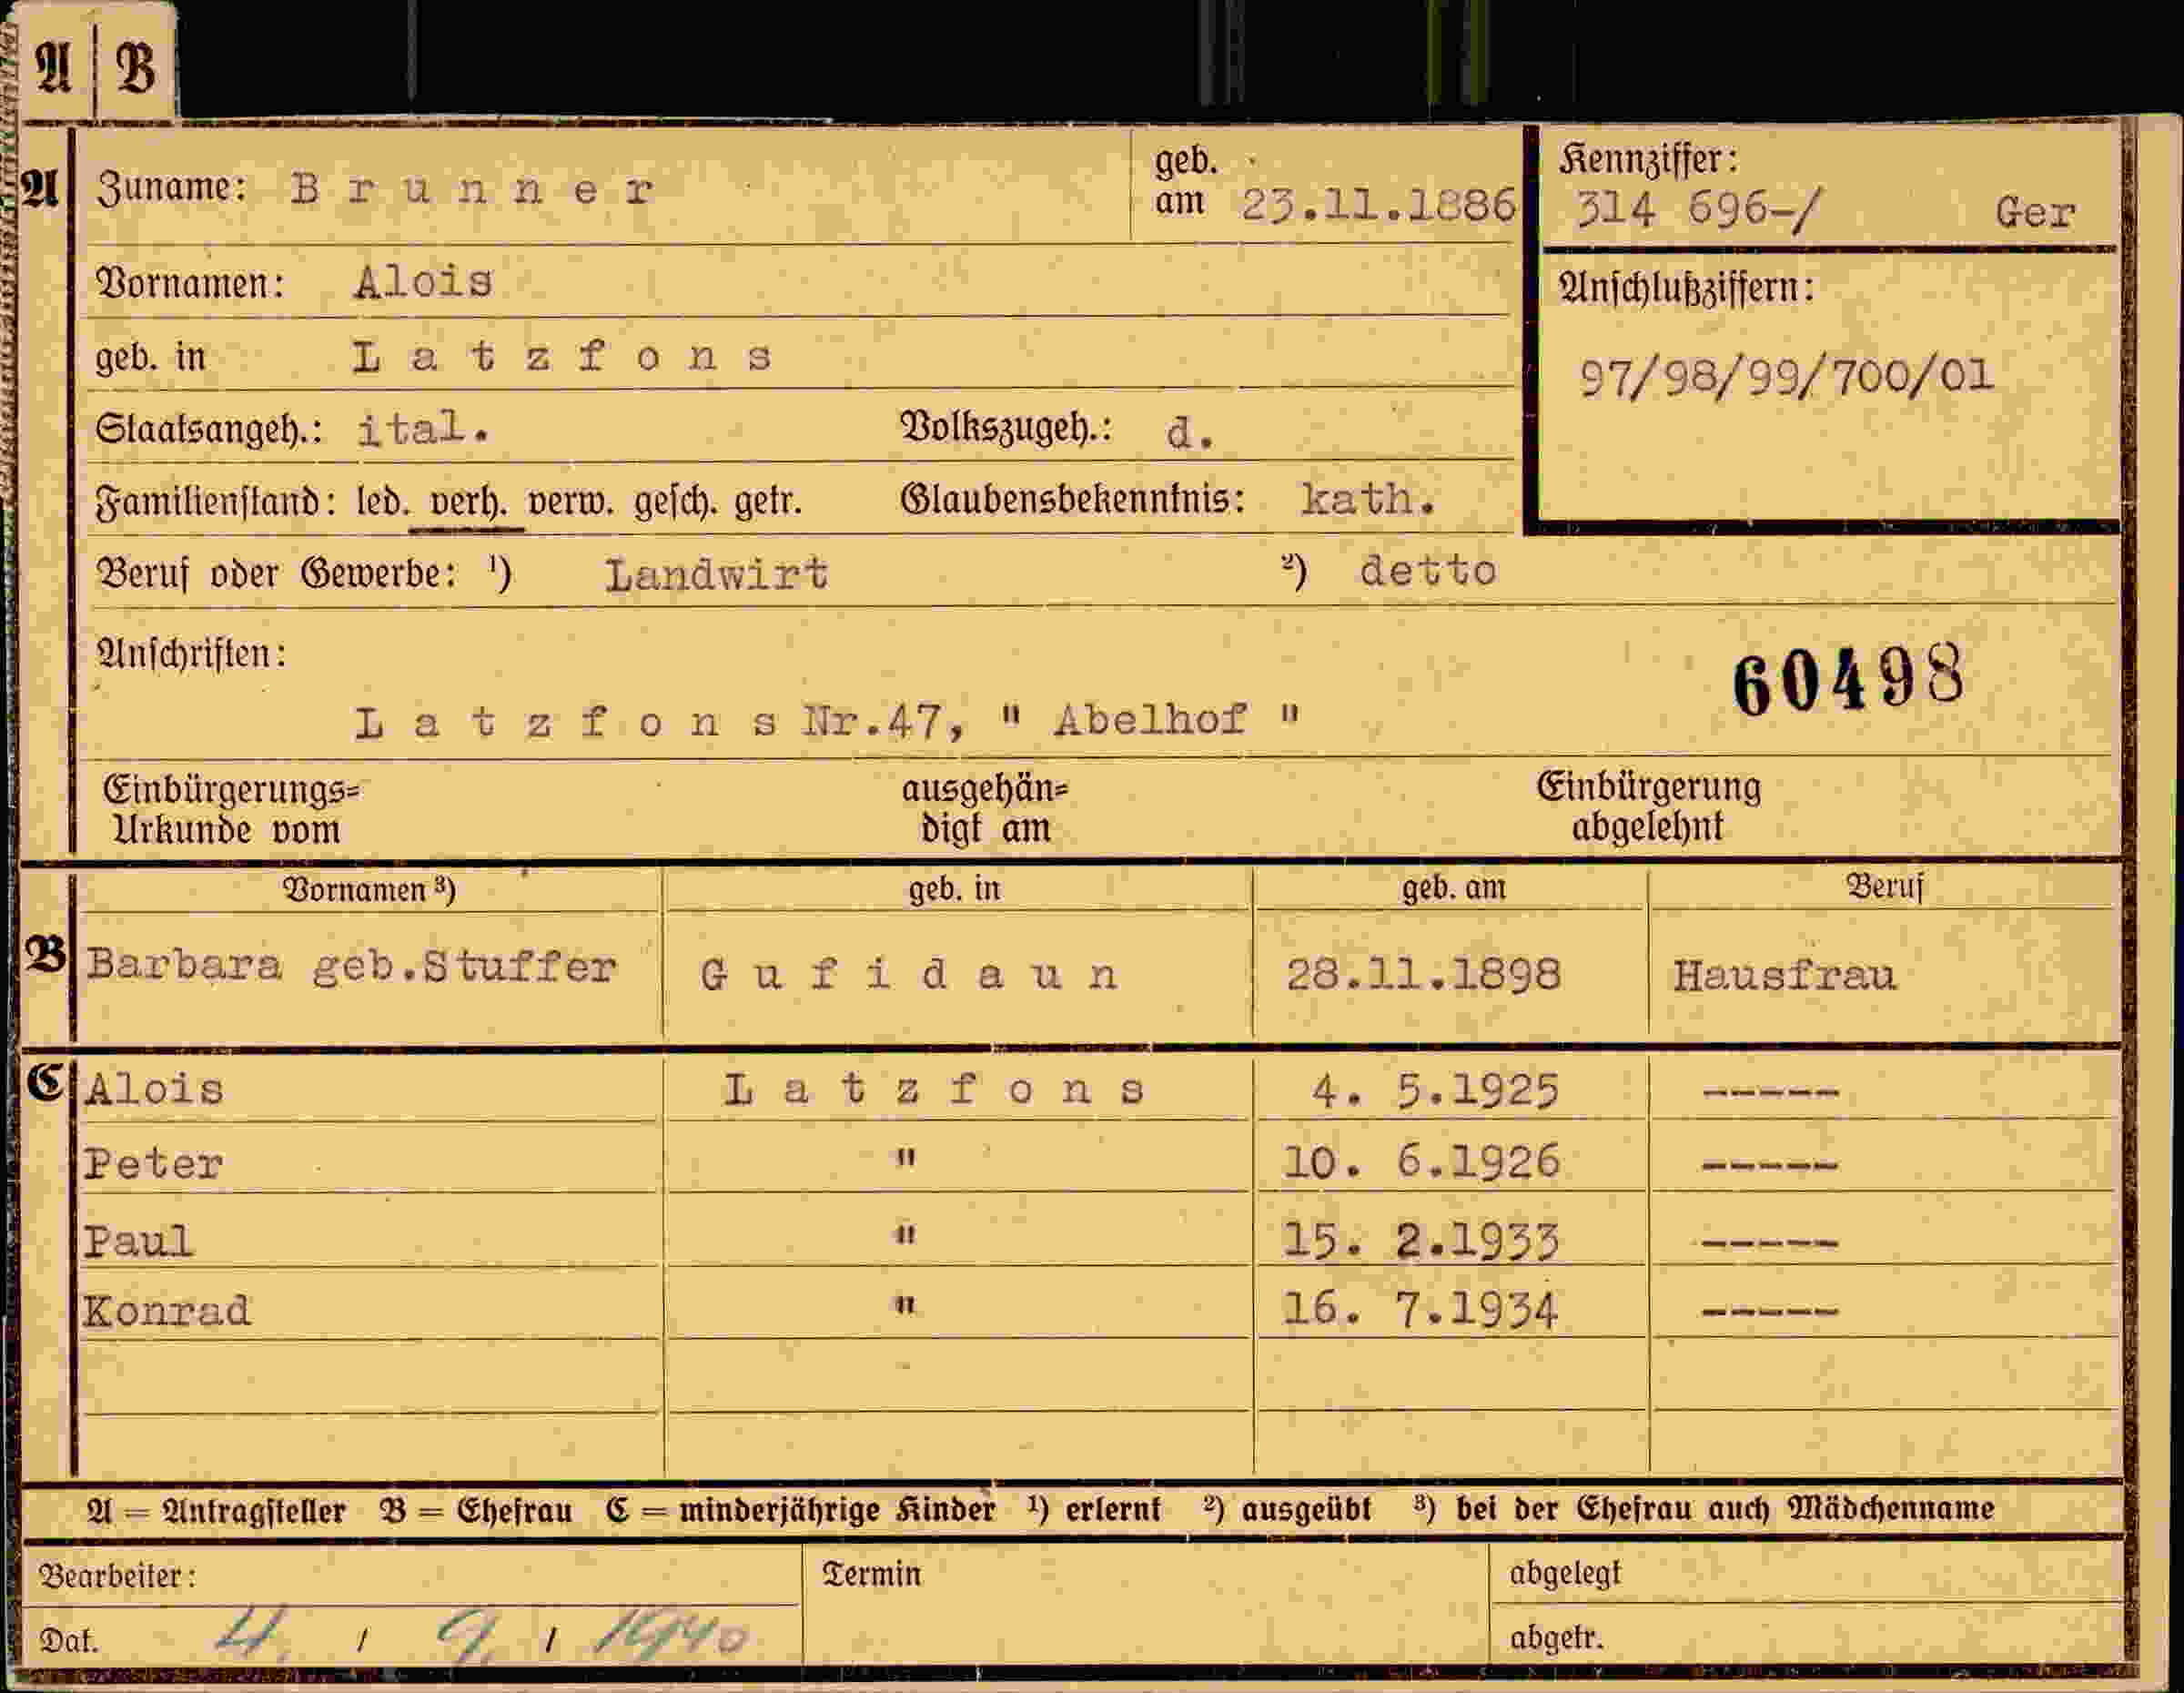 A | B
A Zuname: B r u n n e r geb. am 23.11.1886
Kennziffer:
314 696-/ Ger
Vornamen: Alois
Anschlußziffern:
97/98/99/700/01
geb. in L a t z f o n s
Staatsangeh.: ital. Volkszugeh.: d.
Familienstand: led. verh. verw. gesch. getr. Glaubensbekenntnis: kath.
Beruf oder Gewerbe: ¹) Landwirt ²) detto
Anschriften:
60498
L a t z f o n s Nr.47, " Abelhof "
Einbürgerungs= ausgehän= Einbürgerung
Urkunde vom digt am abgelehnt
Vornamen ³) geb. in geb. am Beruf
B Barbara geb.Stuffer G u f i d a u n 28.11.1898 Hausfrau
C Alois L a t z f o n s 4. 5.1925 -----
Peter " 10. 6.1926 -----
Paul " 15. 2.1933 -----
Konrad " 16. 7.1934 -----
A = Antragsteller B = Ehefrau C = minderjährige Kinder ¹) erlernt ²) ausgeübt ³) bei der Ehefrau auch Mädchenname
Bearbeiter: Termin abgelegt
Dat. 4. / 9. / 1940 abgetr.